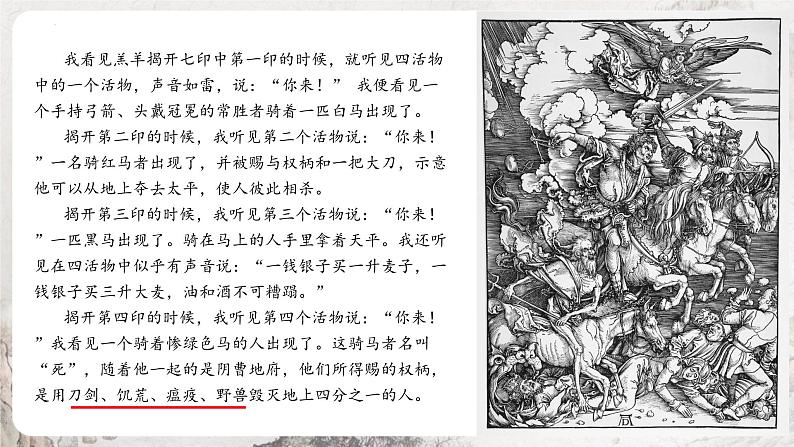 我看见羔羊揭开七印中第一印的时候，就听见四活物
中的一个活物，声音如雷，说：“你来！” 我便看见一
个手持弓箭、头戴冠冕的常胜者骑着一匹白马出现了。
揭开第二印的时候，我听见第二个活物说：“你来！
”一名骑红马者出现了，并被赐与权柄和一把大刀，示意
他可以从地上夺去太平，使人彼此相杀。
揭开第三印的时候，我听见第三个活物说：“你来！
”一匹黑马出现了。骑在马上的人手里拿着天平。我还听
见在四活物中似乎有声音说：“一钱银子买一升麦子，一
钱银子买三升大麦，油和酒不可糟蹋。”
揭开第四印的时候，我听见第四个活物说：“你来！
”我看见一个骑着惨绿色马的人出现了。这骑马者名叫
“死”，随着他一起的是阴曹地府，他们所得赐的权柄，
是用刀剑、饥荒、瘟疫、野兽毁灭地上四分之一的人。
AD